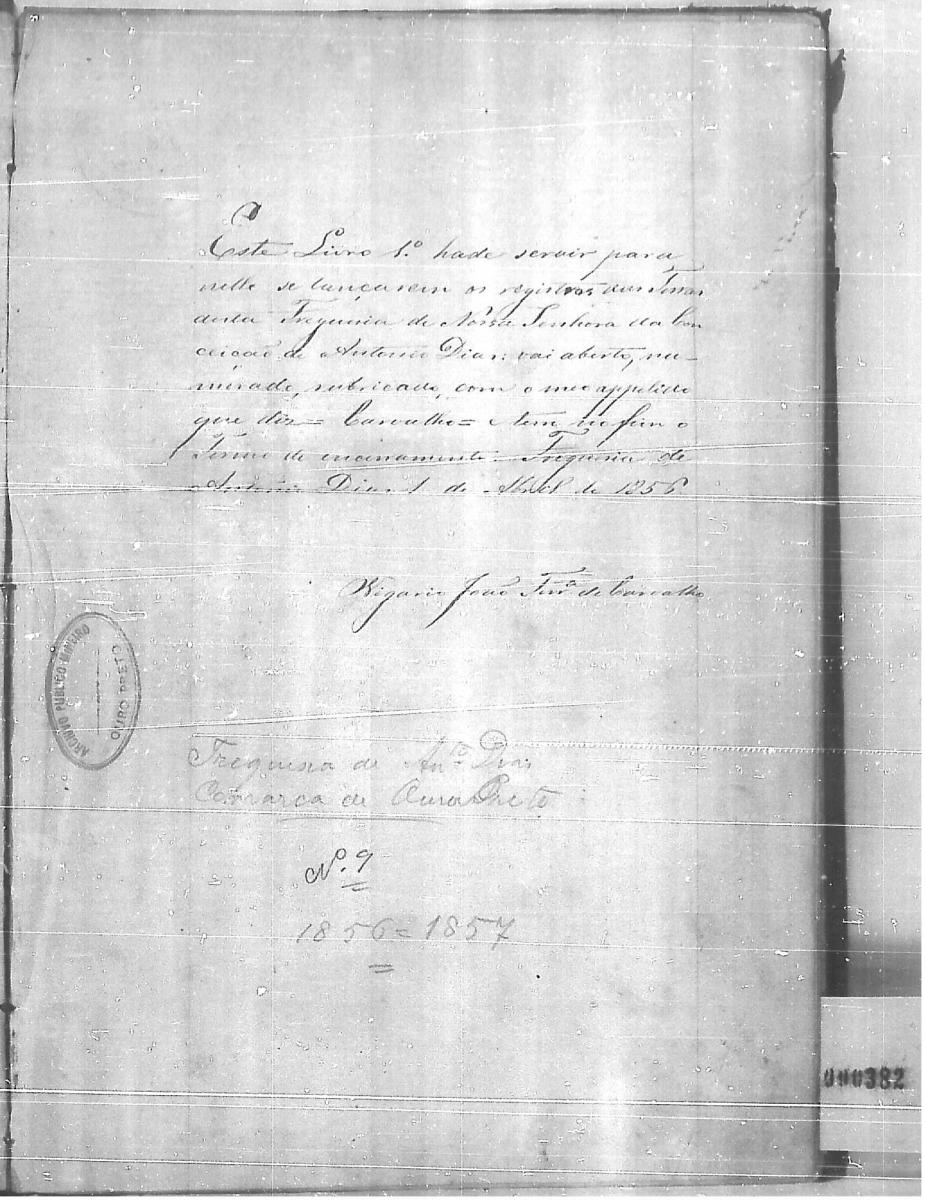 Este Livro 1º. hade servir para
nelle se lançarem os registros das Terras
desta Freguesia de Nossa Senhora da Con
ceicaõ de Antonio Dias: vai aberto, nu-
merado, rubricado, com o meo appelido
que diz = Carvalho = e tem no fim o
Termo de encerramento. Freguesia de
Antonio Dias 1 de Abril de 1856
Vigario João Ferrª de Carvalho
ARCHIVO PUBLICO MINEIRO
OURO PRETO
Freguesia de Antº Dias
Comarca de Ouro Preto
Nº. 9
1856 = 1857
000382